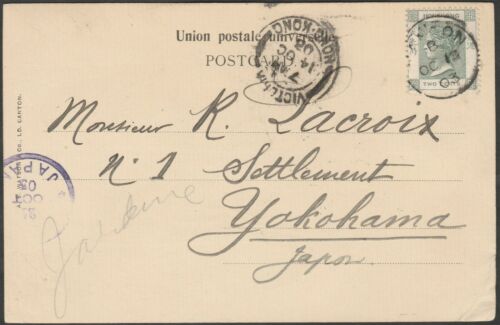 Union postale universelle
POSTCARD
HONG KONG
TWO CENTS
CANTON
OC
03
VICTORIA
HONG-KONG
7 AM
14 OC
03
Monsieur R. Lacroix
No. 1 Settlement
Yokohama
Japon
A. S. WATSON & Co., LD. CANTON.
JAPAN
OCT
03